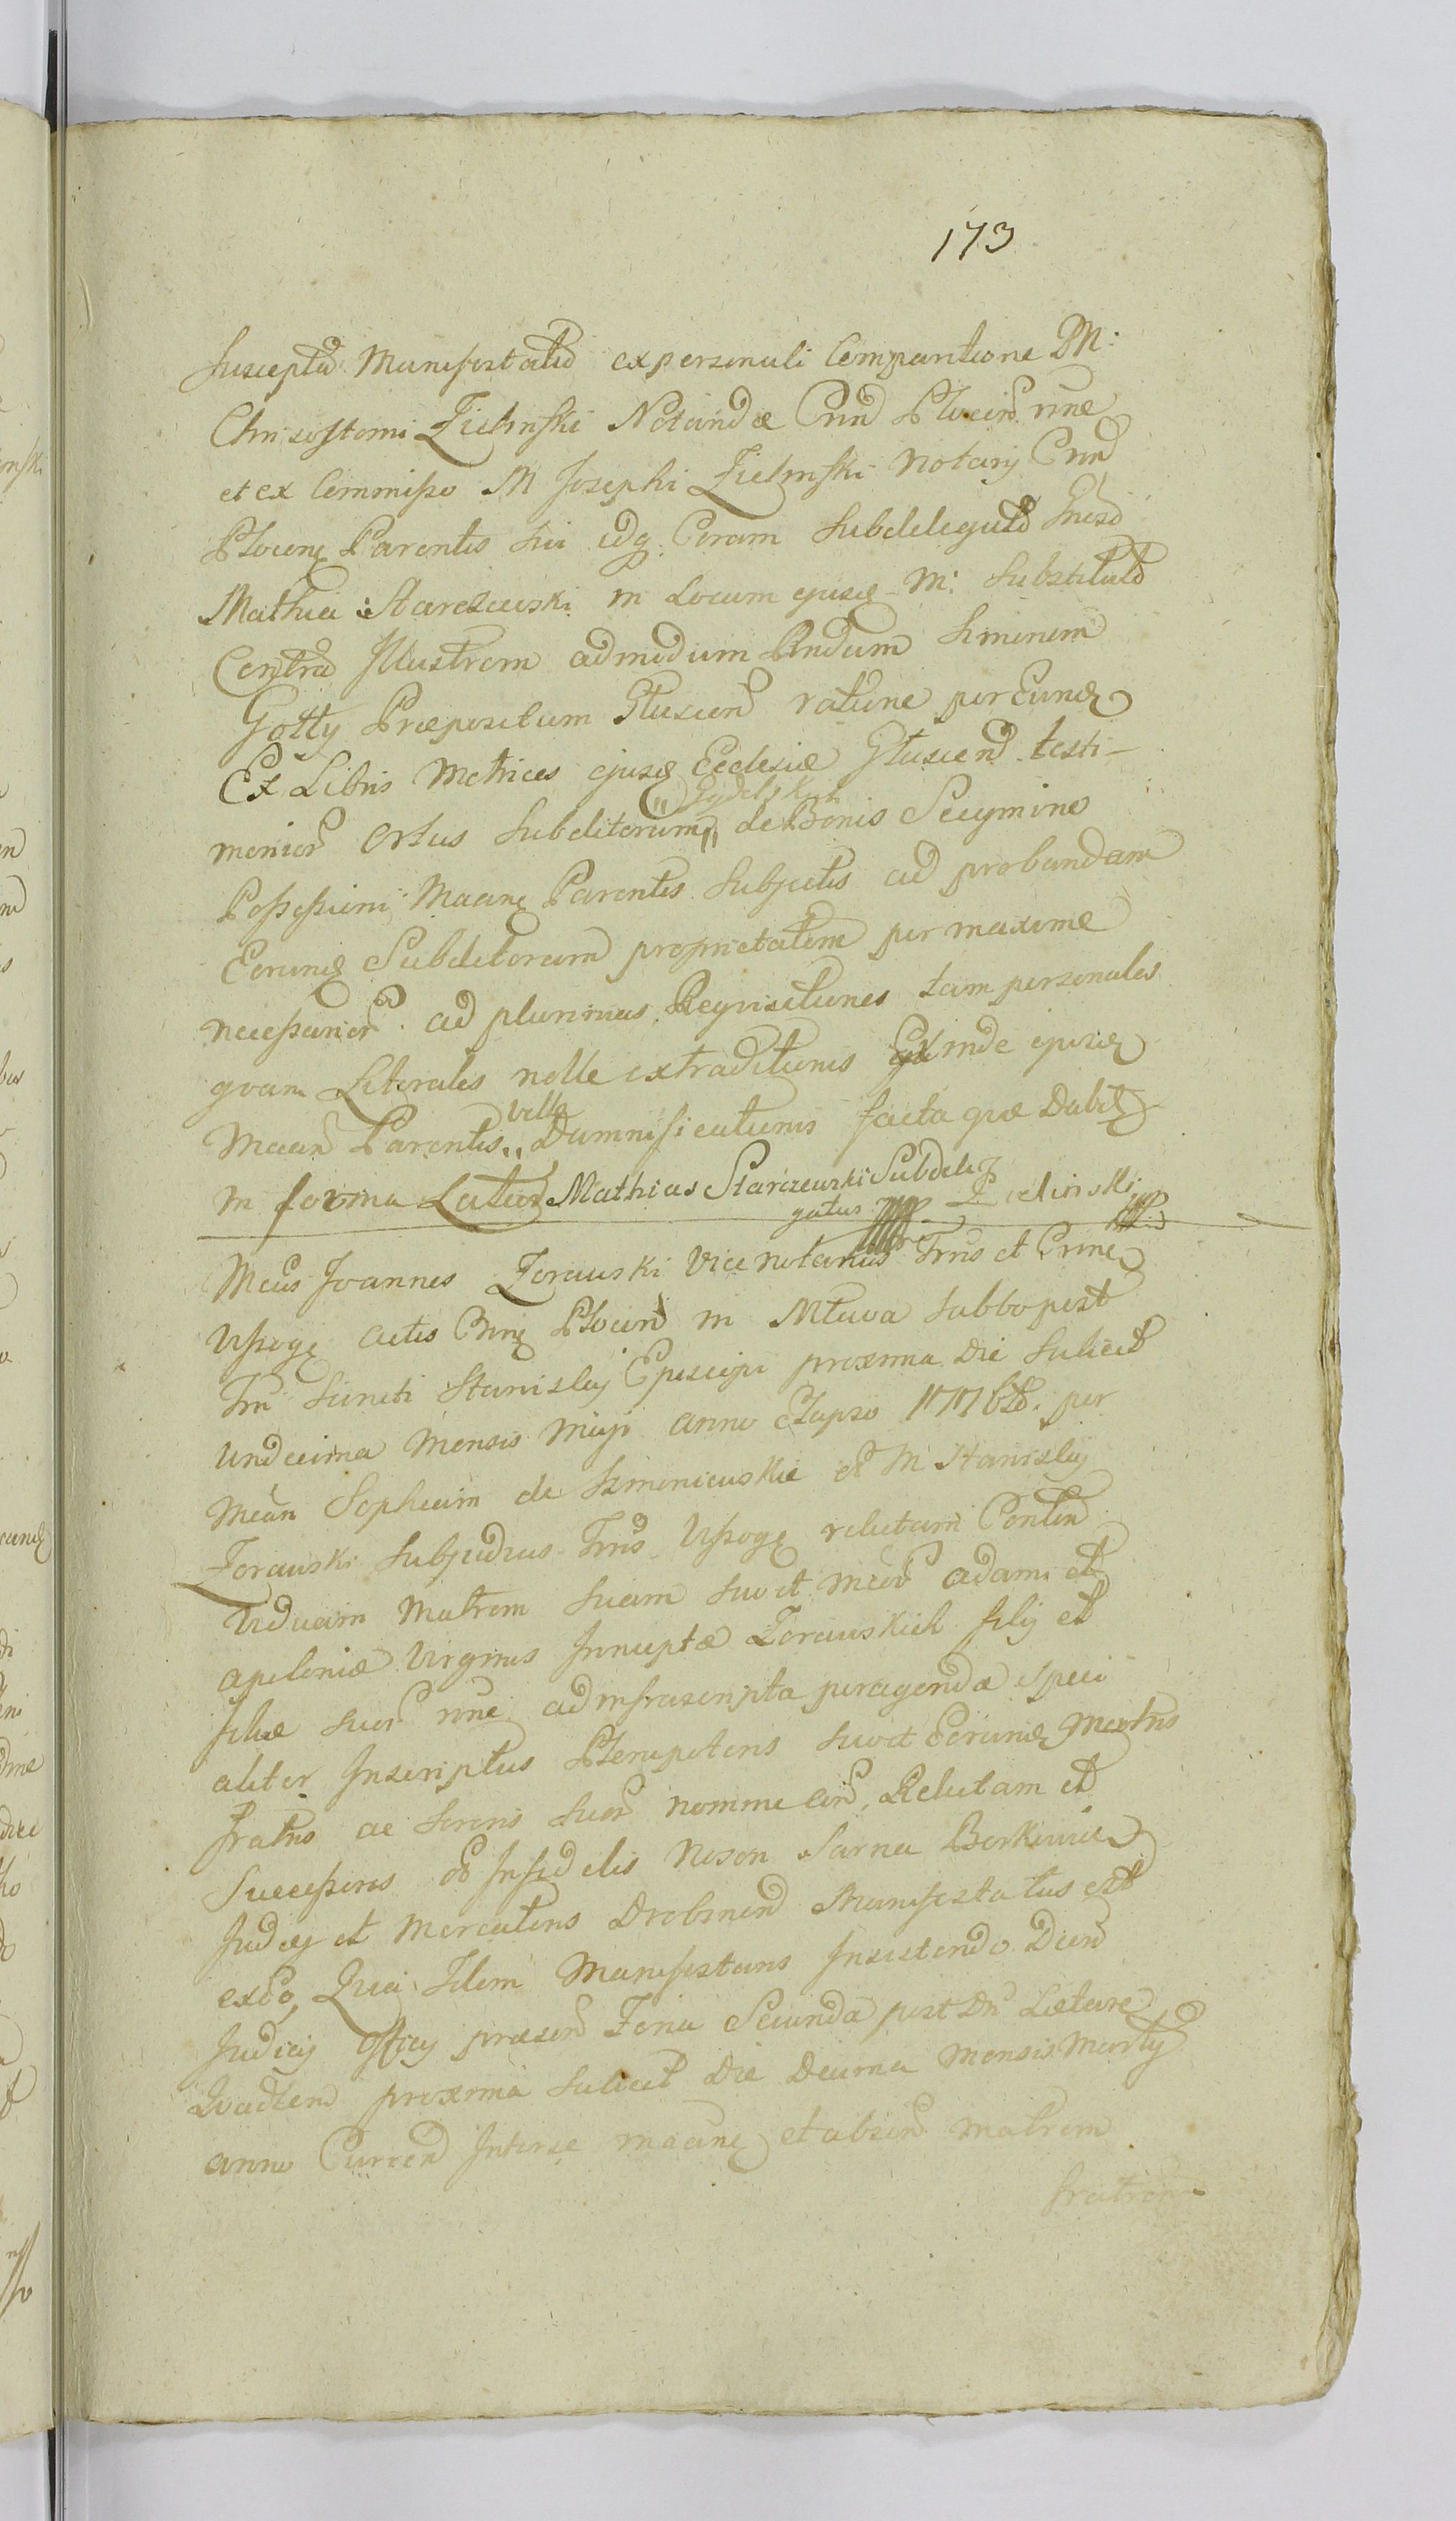 173
Suscepta Manifestatio ex personali Comparitione M:
Chrisostomi Zielinski Notaridæ Crnñ Plocen nne
et ex Commisso M Josephi Zielinski Notarij Crnñ
Plocenę Parentis sui idq Coram Subdelegato Gnoso
Mathia Starczewski in Locum ejusdę M: Substituto
Contra Illustrem admodum Rndum Simonem
Gotty Præpositum Gluscen ratione per Eundę
Ex Libris Metrices ejusdę Ecclesiæ Gluscen testi-
monior Ortus Subditorum de Bonis Secymino
Possessioni Maanę Parentis Subjectis ad probandam
Eorundę Subditorum proprietatem per maxime
necessarior ad plurimas Reqvisitiones tam personales
qvam Literales nolle extraditionis exinde ipsius
velle
Maañ Parentis Damnificationis facta quæ Dabitę
in forma Latior Mathias Starczewski Subdele
gatus Zielinski
Mcus Joannes Zorawski Vice notarius Trris et Crnne
Wyssogę actis Crnę Plocen in Mlawa Sabbo post
Fm Sancti Stanislaj Episcopi proxima Die scilicet
Undecima Mensis Maji anno Elapso 1776to. per
Mcam Sophiam de Szmoniewskie et M Stanislaj
Zorawski Subjudicis Trris Wyssogę relictam Conten
Viduam Matrem suam suo et Mcor Adami et
Apoloniæ Virginis Innuptæ Zorawskich filij et
filiæ suor nne ad infrascripta peragenda speci
aliter Inscriptus Plenipotens suo et Eorundę Matris
fratris ac Sororis suor nomine eor Relictam et
Successores ob Infidelis Noson Sarna Berkowicz
Judæj et Mercatoris Drobinen Manifestatus est
exeo, Quia Idem Manifestans Insistendo Dieñ
Judicij Officij præsen Feria Secunda post Dn Lætare
Qvadlem proxima scilicet Die Decima Mensis Martij
anno Curren Inter se maanę et absen Matrem
fratrem